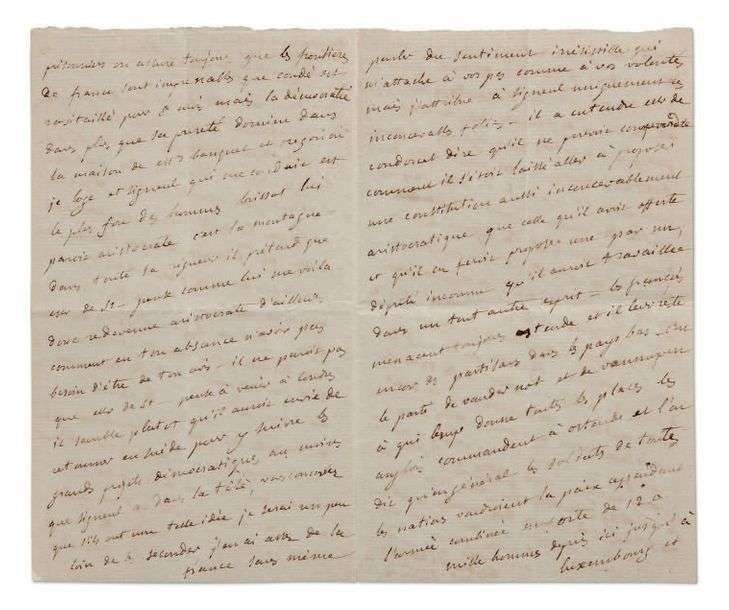 prisonniers on assure toujours que les frontières
de france sont imprenables que condé est
ravitaillé pour 8 mois mais la démocratie
dans plus que sa pureté domine dans
la maison de banquet et
je loge et signeul qui me conduit est
le plus fier des hommes brissot lui
paroit aristocrate c'est la montagne
dans toute sa vigueur il prétend que
de st - pense comme lui me voila
donc redevenue aristocrate d'ailleurs
comment en ton absence n'avoir pas
besoin d'être de ton avis - il ne paroit pas
que de st - pense à venir à londres
il semble plutot qu'il auroit envie de
retourner en suède pour y suivre les
grands projets démocratiques au moins
que signeul a dans la tête, vous concevez
que s'ils ont une telle idée je serai un peu
loin de la seconder j'en ai assez de la
france sans même
parler du sentiment irrésistible qui
m'attache à vos pas comme à vos volontés
mais j'attribue à signeul uniquement ces
inconcevables folies - il a entendu de
condorcet dire qu'il ne pouvoit comprendre
comment il s'étoit laissé aller à proposer
une constitution aussi inconcevablement
aristocratique que celle qu'il avoit offerte
et qu'il en feroit proposer une par un
député inconnu qu'il auroit travaillée
dans un tout autre esprit - les francois
menacent toujours ostende et il leur reste
encore des partisans dans les pays bas
le parti de vander noot et de
à qui donne toutes les places les
anglois commandent à ostende et l'on
dit qu'en général les soldats de toutes
les nations voudroient la paix cependant
l'armée combinée est forte de 12 à
mille hommes depuis ici jusqu'à
luxembourg et